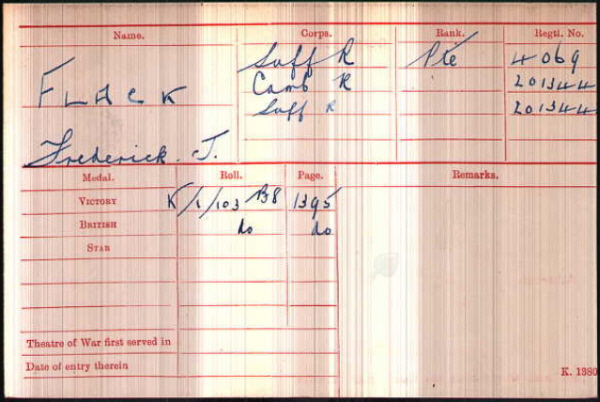 Name. Corps. Rank. Regtl. No.
Suff R Pte 4069
FLACK Camb R 201344
Suff R 201344
Frederick. J.
Medal. Roll. Page. Remarks.
VICTORY K/1/103 B8 1395
BRITISH do do
STAR
Theatre of War first served in
Date of entry therein
K. 1380